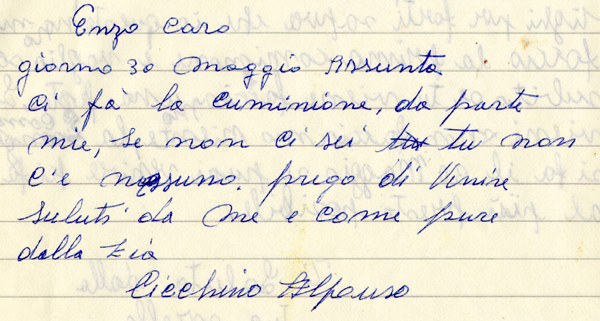 Enzo caro
giorno 30 Maggio Assunta
ci fà la cuminione, da parte
mie, se non ci sei tu non
c'e nessuno. prego di Venire
saluti da me e come pure
dalla zia
Cicchino Alfonso